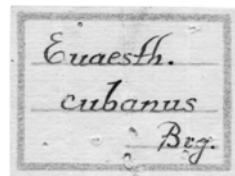 Euaesth.
cubanus
Brg.